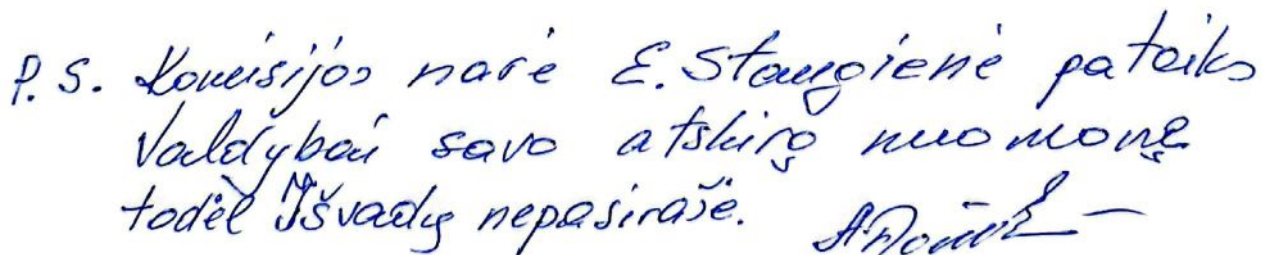 P.S. Komisijos narė E. Staugienė pateiks
Valdybai savo atskirą nuomonę
todėl Išvadų nepasirašė.